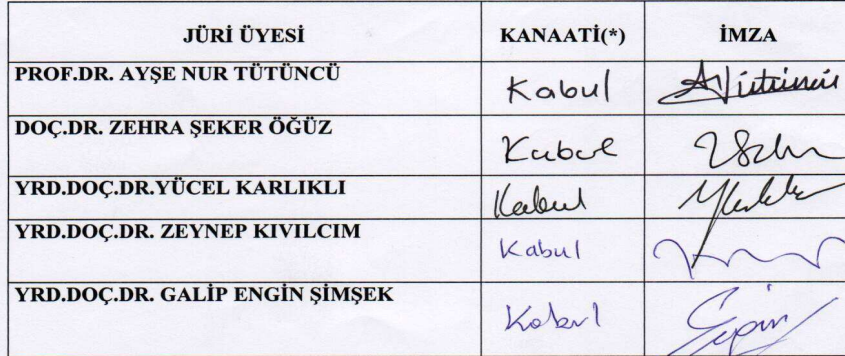 JÜRİ ÜYESİ KANAATİ(*) İMZA
PROF.DR. AYŞE NUR TÜTÜNCÜ Kabul
DOÇ.DR. ZEHRA ŞEKER ÖĞÜZ Kabul
YRD.DOÇ.DR.YÜCEL KARLIKLI Kabul
YRD.DOÇ.DR. ZEYNEP KIVILCIM Kabul
YRD.DOÇ.DR. GALİP ENGİN ŞİMŞEK Kabul